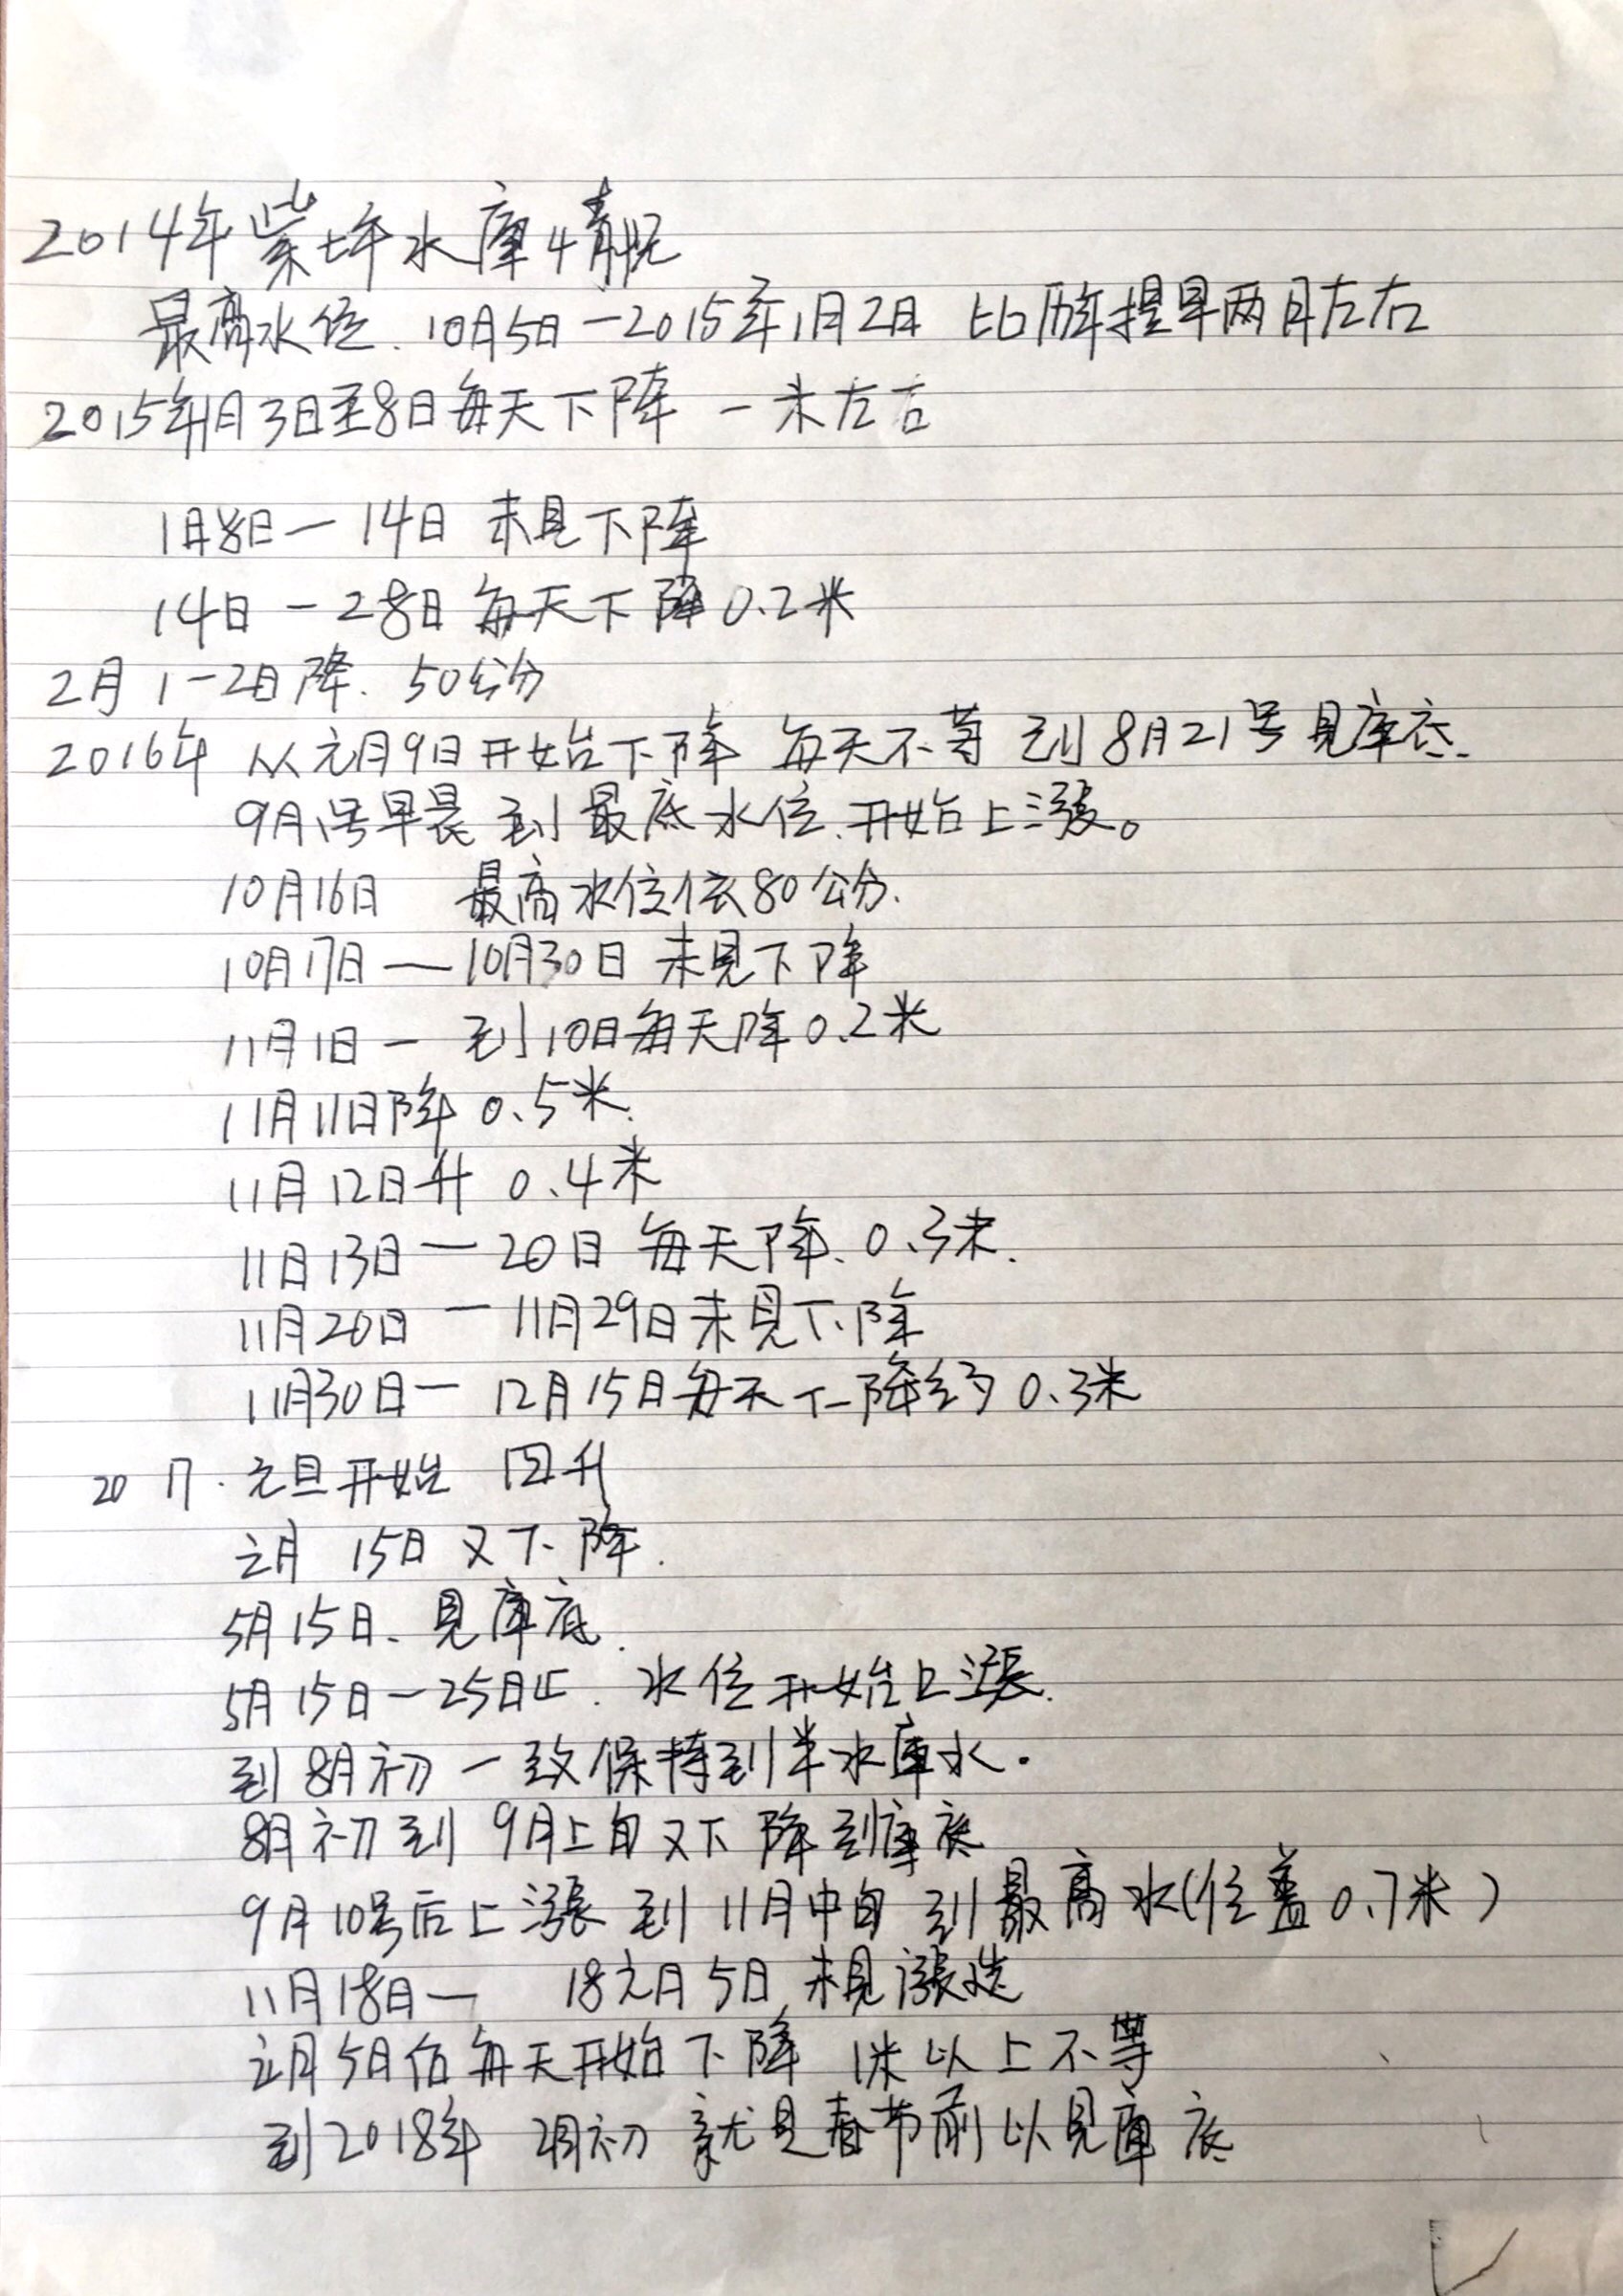 2014年紫坪水库情况
最高水位、10月5日一2015年1月2日 比历年提早两月左右
2015年1月3日至8日每天下降 一米左右
1月8日一14日 未见下降
14日一28日每天下降0.2米
2月1一2日降、50公分
2016年 从元月9日开始下降 每天不等 到8月21号见库底、
9月1号早晨 到最底水位、开始上涨。
10月16日 最高水位低80公分、
10月17日一10月30日 未见下降
11月1日一 到10日每天降0.2米
11月11日降 0.5米、
11月12日升 0.4米
11月13日一20日 每天降、0.3米、
11月20日 一11月29日未见下降
11月30日一 12月15日每天下降约0.3米
2017、元旦开始 回升
元月 15日又下降、
5月15日、见库底、
5月15日一25日止、水位开始上涨、
到8月初一致保持到半水库水.
8月初到 9月上旬又下降到库底
9月10号后上涨 到11月中旬 到最高水(位盖0.7米)
11月18日一 18元月5日未见涨
元月5日后每天开始下降 1米以上不等
到2018年 2月初 就是春节前以见库底